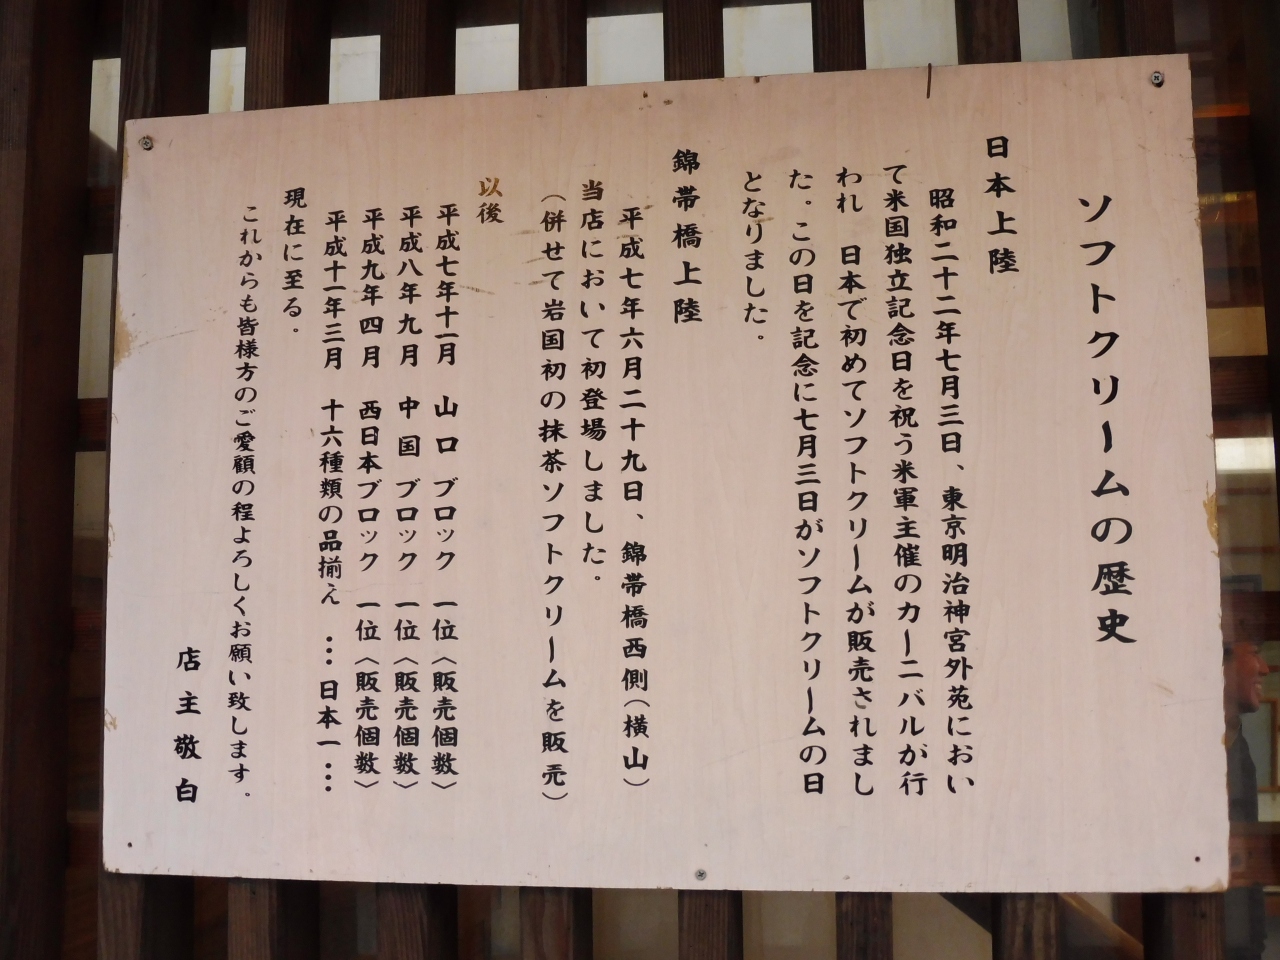 ソフトクリームの歴史
日本上陸
昭和二十二年七月三日、東京明治神宮外苑におい
て米国独立記念日を祝う米軍主催のカーニバルが行
われ 日本で初めてソフトクリームが販売されまし
た。この日を記念に七月三日がソフトクリームの日
となりました。
錦帯橋上陸
平成七年六月二十九日、錦帯橋西側(横山)
当店において初登場しました。
(併せて岩国初の抹茶ソフトクリームを販売)
以後
平成七年十一月 山口 ブロック 一位〈販売個数〉
平成八年九月 中国 ブロック 一位〈販売個数〉
平成九年四月 西日本ブロック 一位〈販売個数〉
平成十一年三月 十六種類の品揃え …日本一…
現在に至る。
これからも皆様方のご愛顧の程よろしくお願い致します。
店主敬白